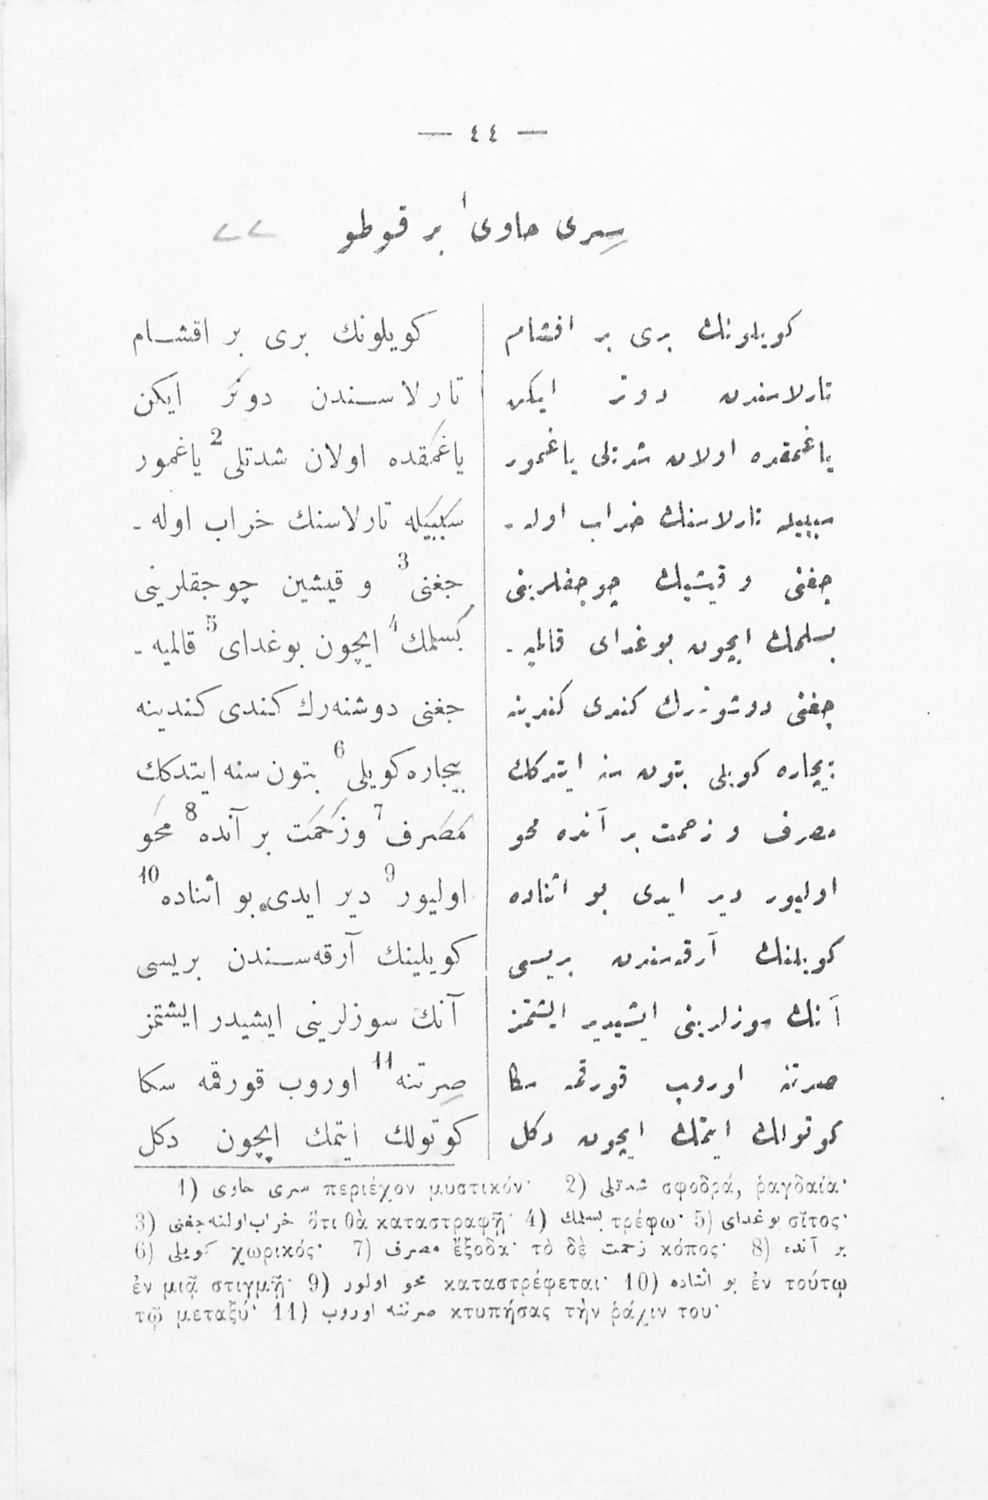 — ٤٤ —
سِرى حاوى¹ بر قوطو
كويلونك برى بر اقشام
تارلاسندن دونر ايكن
ياغمقده اولان شدتلى ياغمور
سببيله تارلاسنك خراب اوله ـ
جغنى و قيشين چوجقلرينى
بسلمك ايچون بوغداى قالميه ـ
جغنى دوشونەرك كندى كندينه
بيچاره كويلى بتون سنه ايتدكك
مصرف و زحمت بر آنده محو
اوليور دير ايدى بو اثناده
كويلنك آرقه‌سندن بريسى
آنك سوزلرينى ايشيدير ايشتمز
صرتنه اوروب قورقمه سكا
كوتولك ايتمك ايچون دكل
كويلونك برى بر اقشــام
تارلاســندن دونَر ايكن
ياغمَقده اولان شدتلى² ياغمور
سَبَبَيله تارلاسنك خراب اوله ـ
جغنى³ و قيشين چوجقلرينى
بَسلمك⁴ ايچون بوغداى⁵ قالميه ـ
جغنى دوشنه‌رك كندى كندينه
بيچاره كويلى⁶ بتون سنه ايتدكك
مَصَرف⁷ وزَحمَت بر آنده⁸ محَو
اوليور⁹ دير ايدى بو اثناده¹⁰
كويلينك آرقه‌ســندن بريسى
آنك سوزلرينى ايشيدر ايشتمز
صِرتنه¹¹ اوروب قورقمه سكا
كوتولك ايتمك ايچون دكل
1) سرى حاوى περιέχον μυστικόν· 2) شدتلى σφοδρά, ῥαγδαία·
3) خراب اولنه‌جغنى ὅτι θὰ καταστραφῇ· 4) بسلمك τρέφω· 5) بوغداى σῖτος·
6) كويلى χωρικός· 7) مصرف ἔξοδα· τὸ δὲ زحمت κόπος· 8) بر آنده
ἐν μιᾷ στιγμῇ· 9) محو اولور καταστρέφεται· 10) بو اثناده ἐν τούτῳ
τῷ μεταξύ· 11) صرتنه اوروب κτυπήσας τὴν ῥάχιν του·